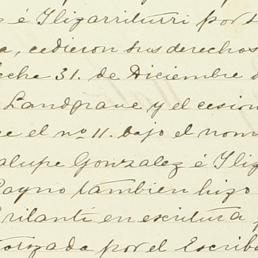 é Iligarriturri por
cedieron sus derechos
fecha 31. de Diciembre d
Landgrave y el cesion
el nº 11. bajo el nom
alupe Gonzalez é Ilig
Payno tambien hizo
en escritura
torzada por el Escrib